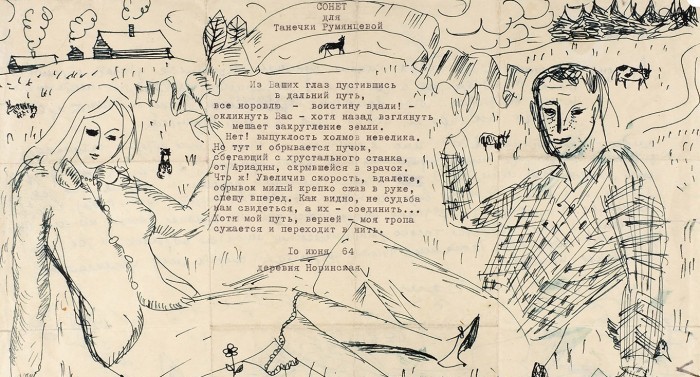 СОНЕТ
для
Танечки Румянцевой
Из Ваших глаз пустившись
в дальний путь,
все норовлю - воистину вдали! -
окликнуть Вас - хотя назад взглянуть
мешает закругление земли.
Нет! выпуклость холмов невелика.
Но тут и обрывается пучок,
сбегающий с хрустального станка,
от Ариадны, скрывшейся в зрачок.
Что ж! Увеличив скорость, вдалеке,
обрывок милый крепко сжав в руке,
спешу вперед. Как видно, не судьба
нам свидеться, а их - соединить...
Хотя мой путь, верней - моя тропа
сужается и переходит в нить.
Iо июня 64
деревня Норинская